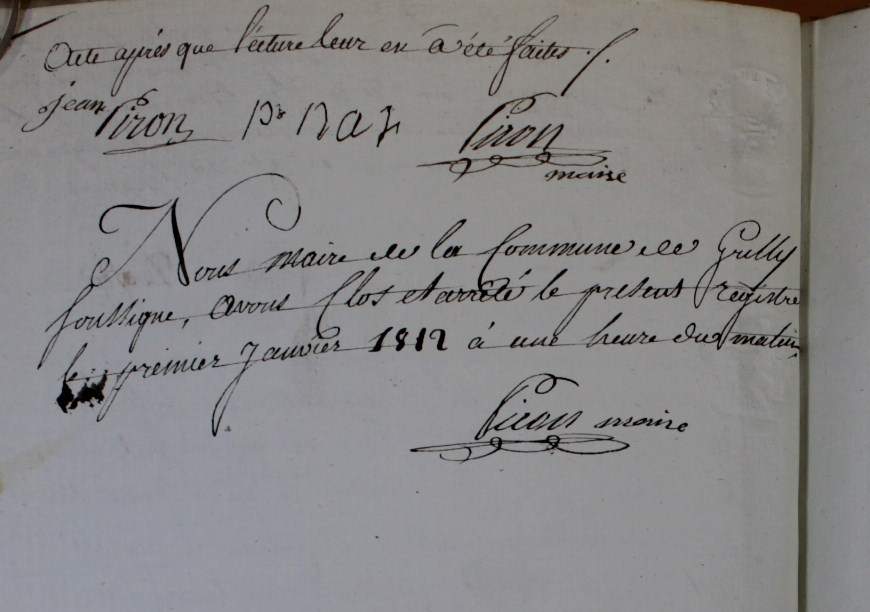 Acte après que lécture leur en à été faites ./.
jean Piron Piron
maire
Nous maire de la Commune de Grilly
soussigne, avons Clos et arrété le present registre
le premier Janvier 1812 à une heure du matin,
Piron maire